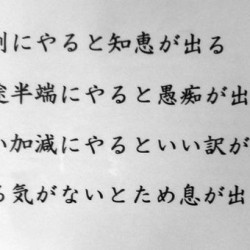 剣にやると知恵が出る
途半端にやると愚痴が出
い加減にやるといい訳が
る気がないとため息が出